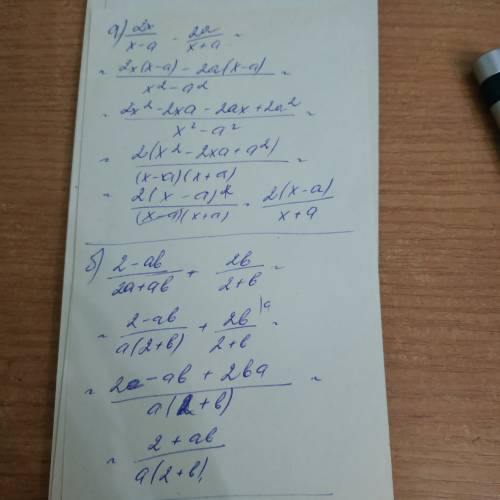 а) 2x/(x-a) - 2a/(x+a) =
= (2x(x-a) - 2a(x-a))/(x²-a²) =
= (2x²-2xa-2ax+2a²)/(x²-a²) =
= 2(x²-2xa+a²)/((x-a)(x+a)) =
= 2(x-a)²/((x-a)(x+a)) = 2(x-a)/(x+a)
б) (2-ab)/(2a+ab) + 2b/(2+b) =
= (2-ab)/(a(2+b)) + 2b/(2+b) |a =
= (2-ab+2ba)/(a(2+b)) =
= (2+ab)/(a(2+b))